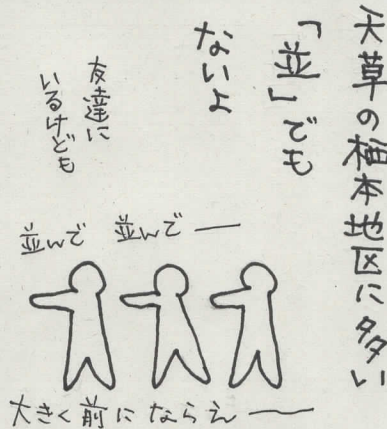 天草の楠本地区に多い
「並」でも
ないよ
友達に
いるけども
並んで 並んで ―
大きく前にならえ ―